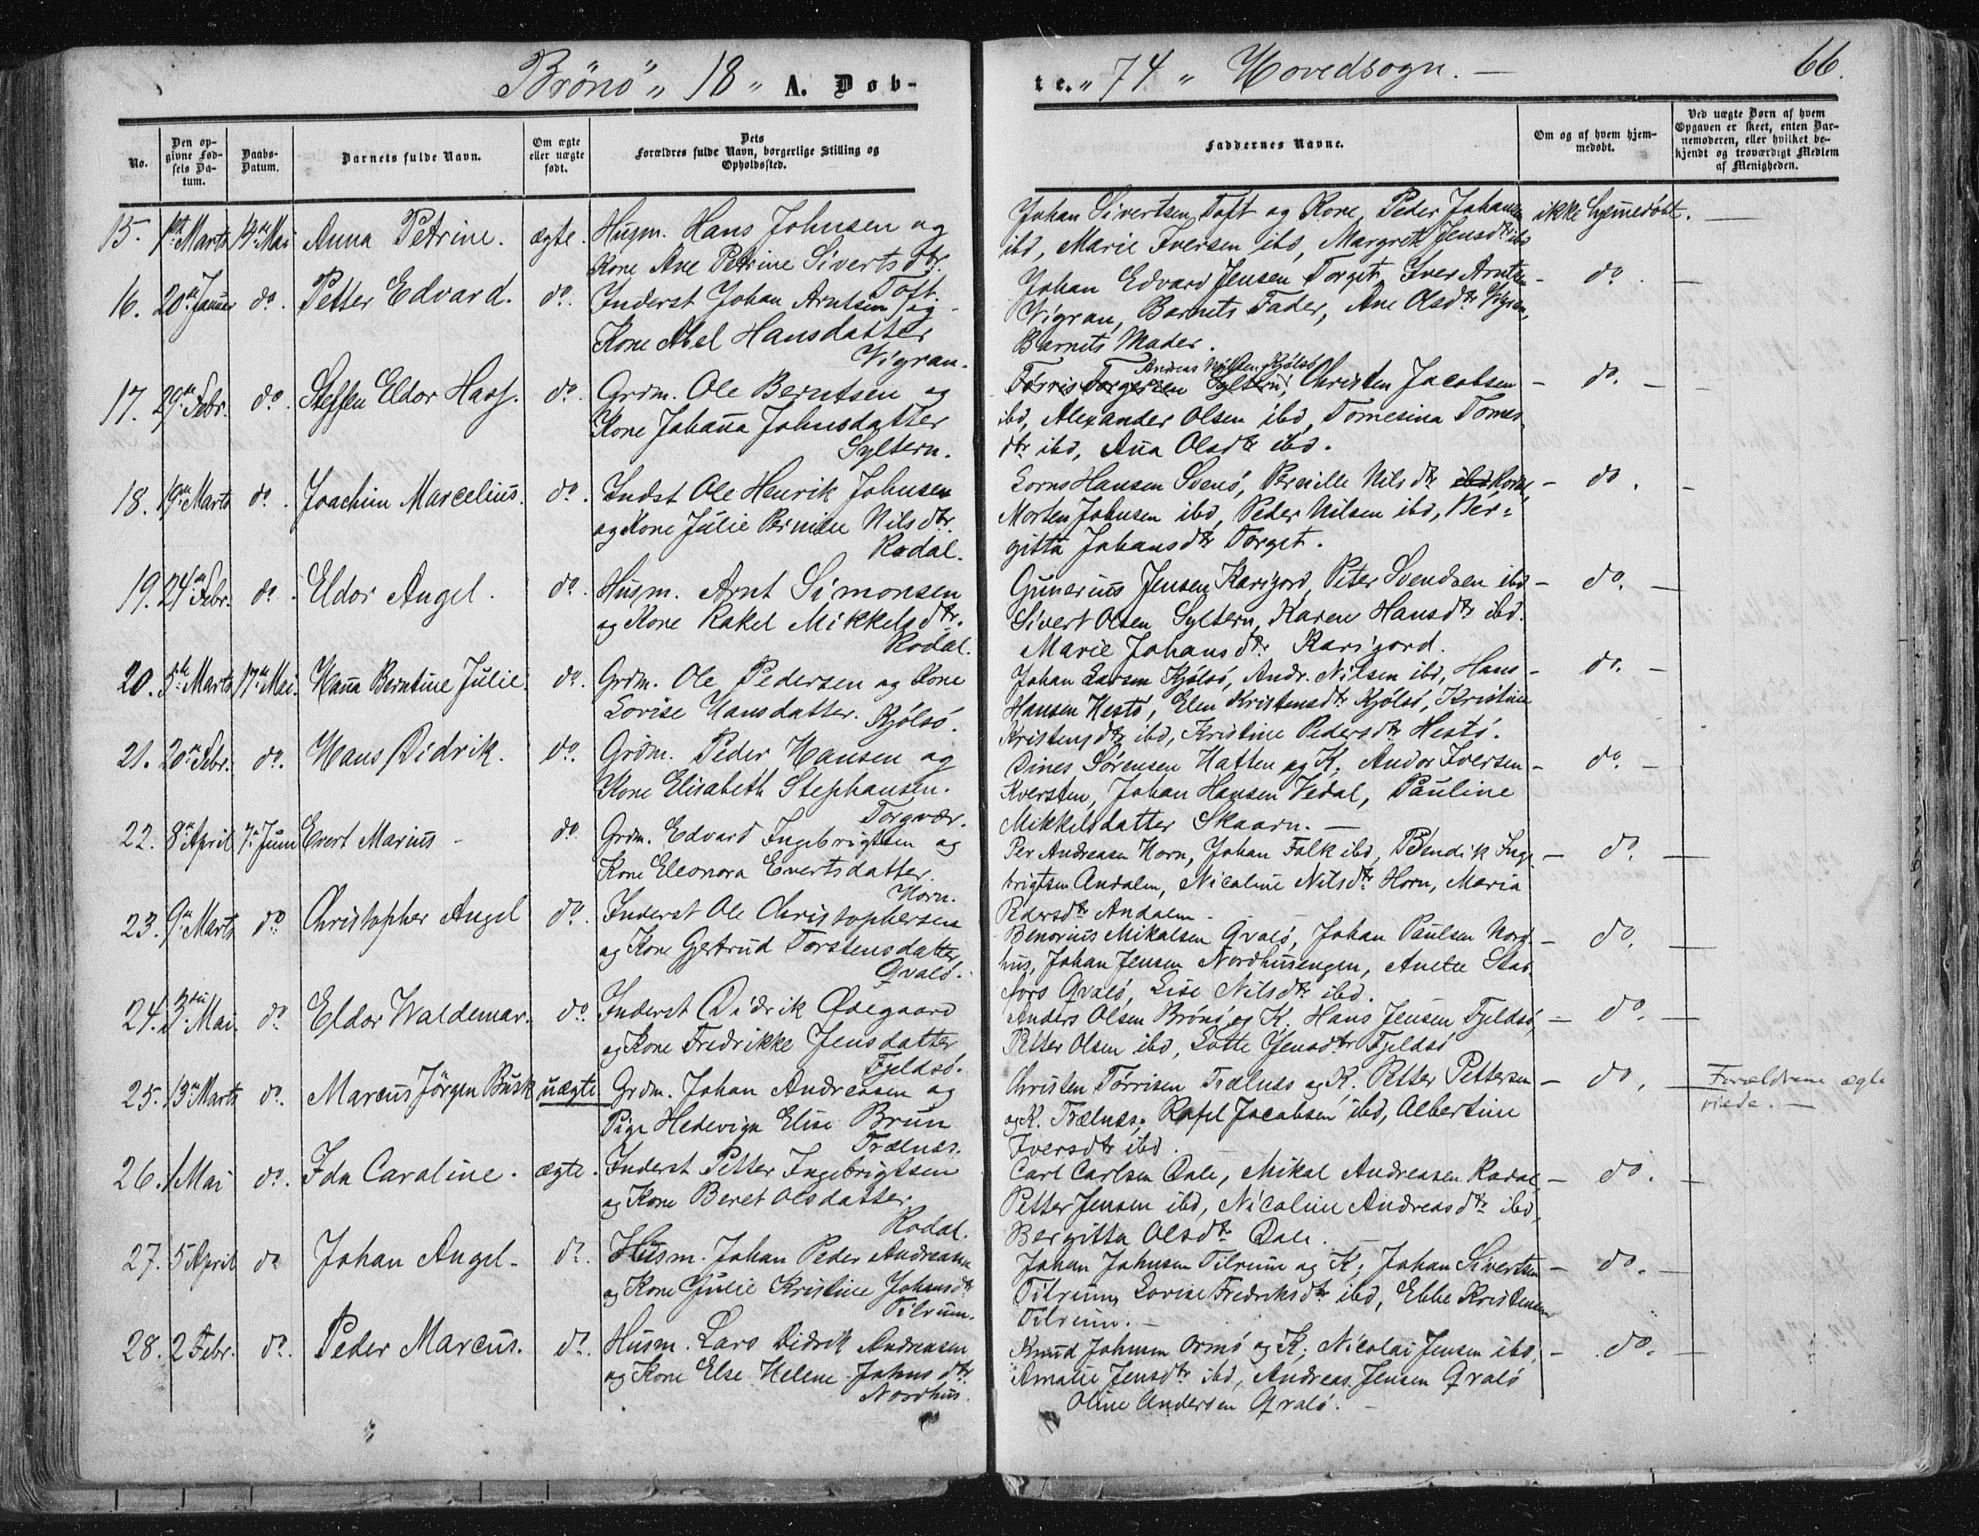 Brönö " 18 " A. Døb-
te. " 74 " Hovedsogn. —
66.
No.
Den opgivne Fødsels Datum.
Daabs-Datum.
Barnets fulde Navn.
Om ægte eller uægte født.
Dets Forældres fulde Navn, borgerlige Stilling og Opholdssted.
Faddernes Navne.
Om og af hvem hjemmedøbt.
Ved uægte Børn af hvem Opgaven er skeet, enten Barnemoderen, eller hvilket bekjendt og troværdigt Medlem af Menigheden.
15. 1ste Marts 14de Mai Anna Petrine. ægte. Husm. Hans Johnsen og
Kone Ane Petrine Sivertsdtr.
Toft.
Johan Sivertsen Toft og Kone, Peder Johansen ikke hjemedøbt. —
ibd, Marie Iversen ibd, Margrete Jensdtr ibd
16. 20de Januar do. Petter Edvard. do. Inderst Johan Arntsen og
Kone Abel Hansdatter
Vigran.
Johan Edvard Jensen Torget, Iver Arntsen — do. —
Vigran, Barnets Fader, Ane Olsdtr Vigran,
Barnets Moder.
17. 29de Febr. do. Steffen Eldor Hass. do. Grdm. Ole Berntsen og
Kone Johanna Johnsdatter
Syltern.
Andreas Nilsen Kjölsö
Torris Torgersen Syltern, Christen Jacobsen — do. —
ibd, Alexander Olsen ibd, Tomesina Tomes
dtr ibd, Anna Olsdtr ibd.
18. 19de Marts do. Joachim Marcelius. do. Indst Ole Henrik Johnsen
og Kone Julie Pernille Nilsdtr.
Rodal.
Lorns Hansen Svenö, Pernille Nilsdtr ibd — do. —
Morten Johnsen ibd, Peder Nilsen ibd, Ber-
gitta Johansdtr Torget.
19. 24de Febr. do. Eldor Angel. do. Husm. Arnt Simonsen
og Kone Rakel Mikkelsdtr.
Rodal.
Gunerius Jensen Karigord, Peter Svendsen ibd — do. —
Sivert Olsen Syltern, Karen Hansdtr ibd.
Marie Johansdtr Karigord.
20. 5te Marts 17de Mai. Hanna Berntine Julie. do. Grdm. Ole Pedersen og Kone
Lovise Hansdatter. Kjölsö.
Johan Larsen Kjölsö, Andr. Nilsen ibd, Hans — do. —
Hansen Hestö, Elen Kristensdtr Kjölsö, Kristine
Kristensdtr ibd, Kristine Pedersdtr Hestö.
21. 20de Febr. do. Hans Didrik. do. Grdm. Peder Hansen og
Kone Elisabeth Stephansen.
Torgvær.
Dines Sörensen Hatten og K, Andor Iversen — do. —
Kversten, Johan Hansen Vedal, Pauline
Mikkelsdatter Skaarn. —
22. 8de April 7de Juni Evert Marius — do. Grdm. Edvard Ingebrigtsen og
Kone Eleonora Evertsdatter.
Horn.
Per Andreasen Horn, Johan Falk ibd, Bendik Inge — do. —
brigtsen Andalen, Nicoline Nilsdtr Horn, Maria
Pedersdtr Andalen.
23. 9de Marts do. Christopher Angel do. Inderst Ole Christophersen
og Kone Gjertrud Torstensdatter,
Qvalö.
Benorius Mikalsen Qvalö, Johan Paulsen Nord — do. —
hus, Johan Jensen Nordhusengen, Anette
Qvalö, Lise Nilsdtr ibd.
24. 3die Mai. do. Eldor Waldemar. do. Inderst Didrik Ödegaard
og Kone Fredrikke Jensdatter
Fjeldsö.
Anders Olsen Brönö og K. Hans Jensen Fjeldsö, — do. —
Petter Olsen ibd, Lotte Jensdtr Fjeldsö
25. 13de Marts do. Marcus Jörgen Busk uægte Grdm. Johan Andreasen og
Pige Hedevign Elise Brun
Trælnes.
Christen Törrisen Trælnes og K. Petter Pettersen — do. — Forældrene ægte
og K. Trælnes, Rafel Jacobsen ibd, Albertine viede. —
Iversdtr ibd.
26. 1 Mai do. Ida Caroline. ægte. Inderst Petter Ingebrigtsen
og Kone Beret Olsdatter
Rodal.
Carl Carlsen Dale, Mikal Andreasen Rodal, — do. —
Petter Jensen ibd, Nicoline Andreasdtr ibd,
Bergitta Olsdtr Dale. —
27. 5 April do Johan Angel — do. Husm. Johan Peder Andreasen
og Kone Julie Kristine Johansdtr
Tilrum.
Johan Johnsen Tilrum og K, Johan Sivertsen — do. —
Tilrum, Lovise Fredriksdtr ibd, Ebbe Kristensen
Tilrum. —
28. 2 Febr. do. Peder Marcus. do. Husm. Lars Didrik Andreasen
og Kone Else Helene Johnsdtr
Nordhus.
Knud Johnsen Ormö og K, Nicolai Jensen ibd, — do. —
Amalie Jensdtr ibd, Andreas Jensen Qvalö
Oline Andersen Qvalö. —